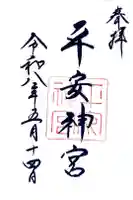 奉拝
平安神宮
令和八年五月十四日